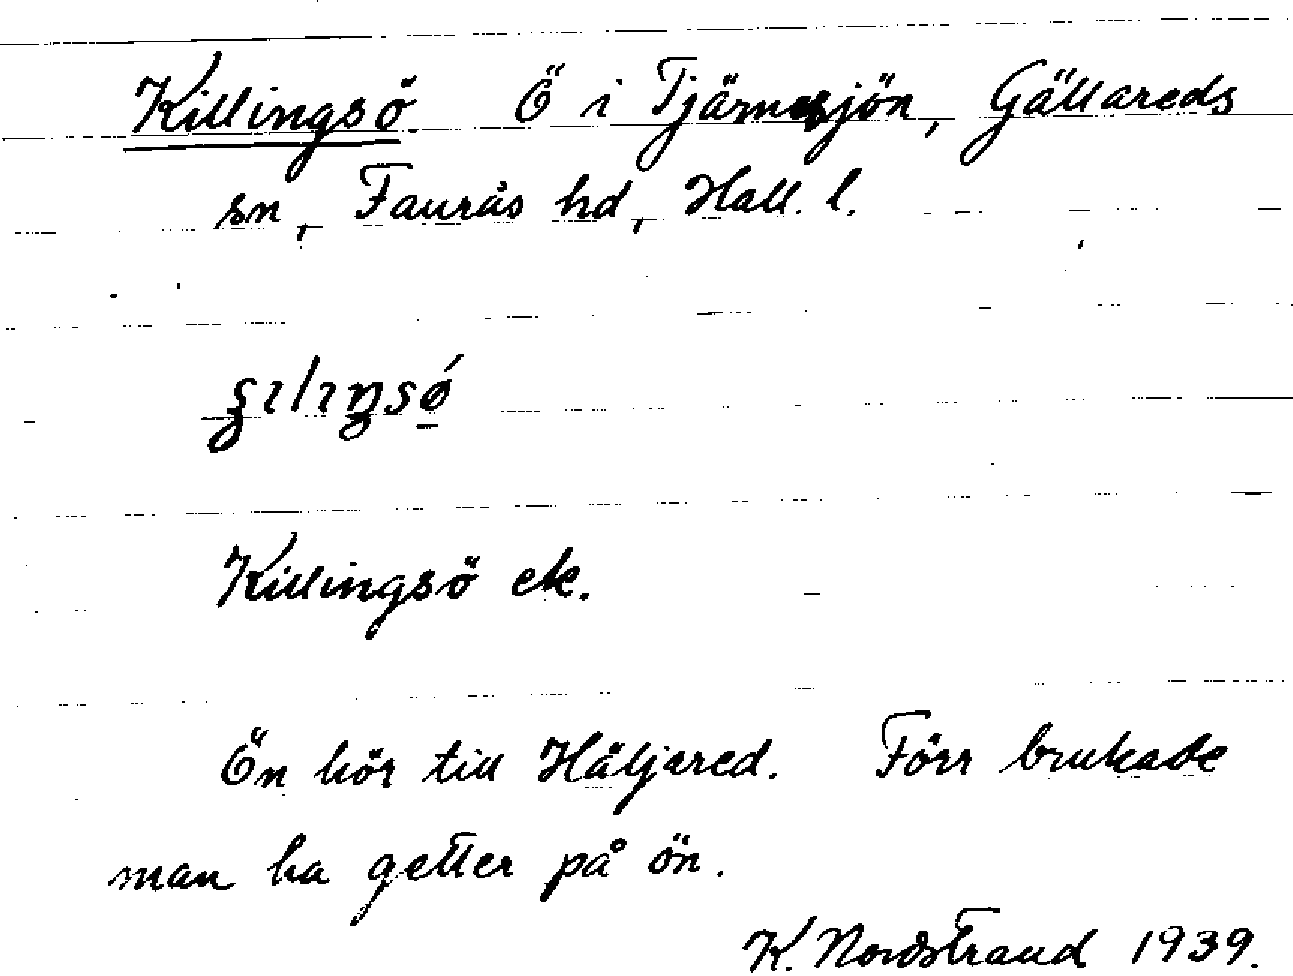 Killingsö. Ö i Tjärnesjön, Gällareds
sn, Faurås hd, Hall. l.
Killingsö ek.
Ön hör till Häljared. Förr brukade
man ha getter på ön.
K. Nordstrand 1939.